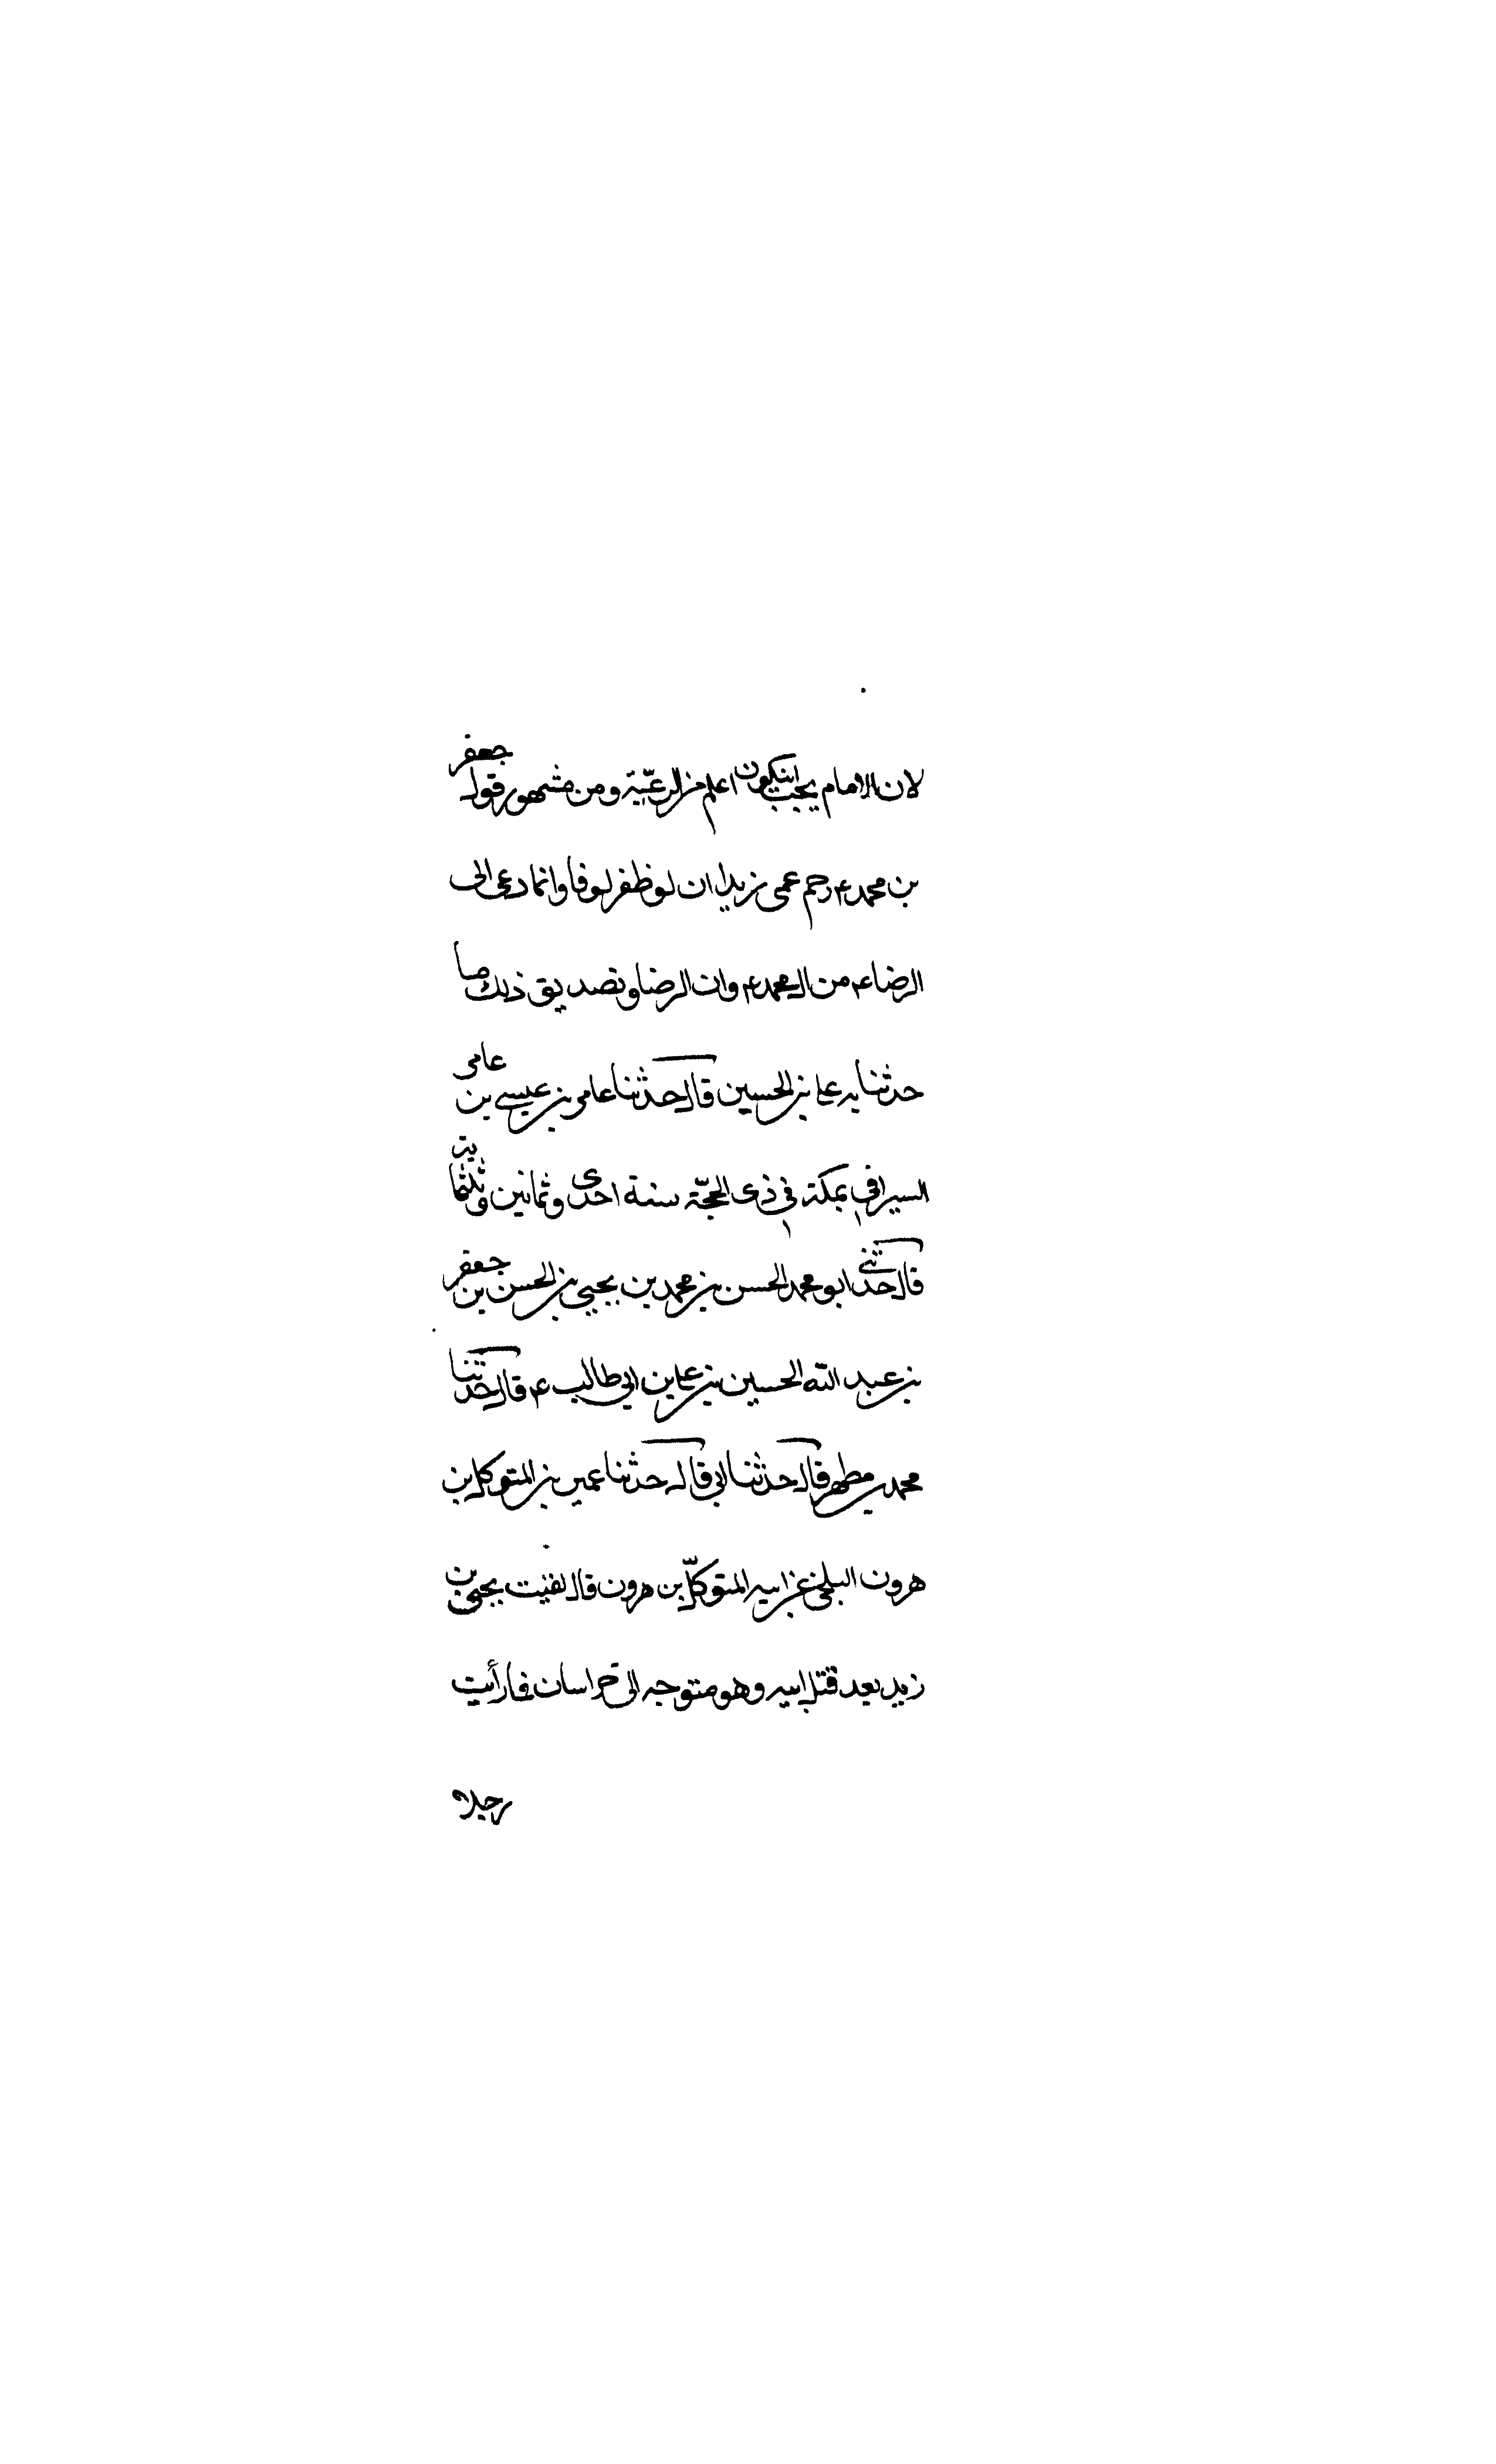 لان الامام يجب ان يكون اعلم من الرعيّة ومن مشهور قول جعفر
بن محمد ع رحم عمى زيدا ان لو ظفر لوفا وانما دعى الى
الرضاء من ال محمد ع وان الرضا وتصديق ذلك ما
حدثنا به على بن الحسين قال حدثنا عامر بن عيسى بن عامر
السيرافي بمكة في ذى الحجّة سنة احدى وثمانين وثلثمائة
قال حدثنى ابو محمد الحسن بن محمد بن يحيى بن الحسن بن جعفر
بن عبد الله الحسين بن على بن ابى طالب ع قال حدثنا
محمد بن مطهر قال حدثنا ابى قال حدثنا عمير بن المتوكل بن
هرون البلخى عن ابيه المتوكّل بن هرون قال لقيت يحيى بن
زيد بعد قتل ابيه وهو متوجه الى خراسان فما رأيت
رجلا